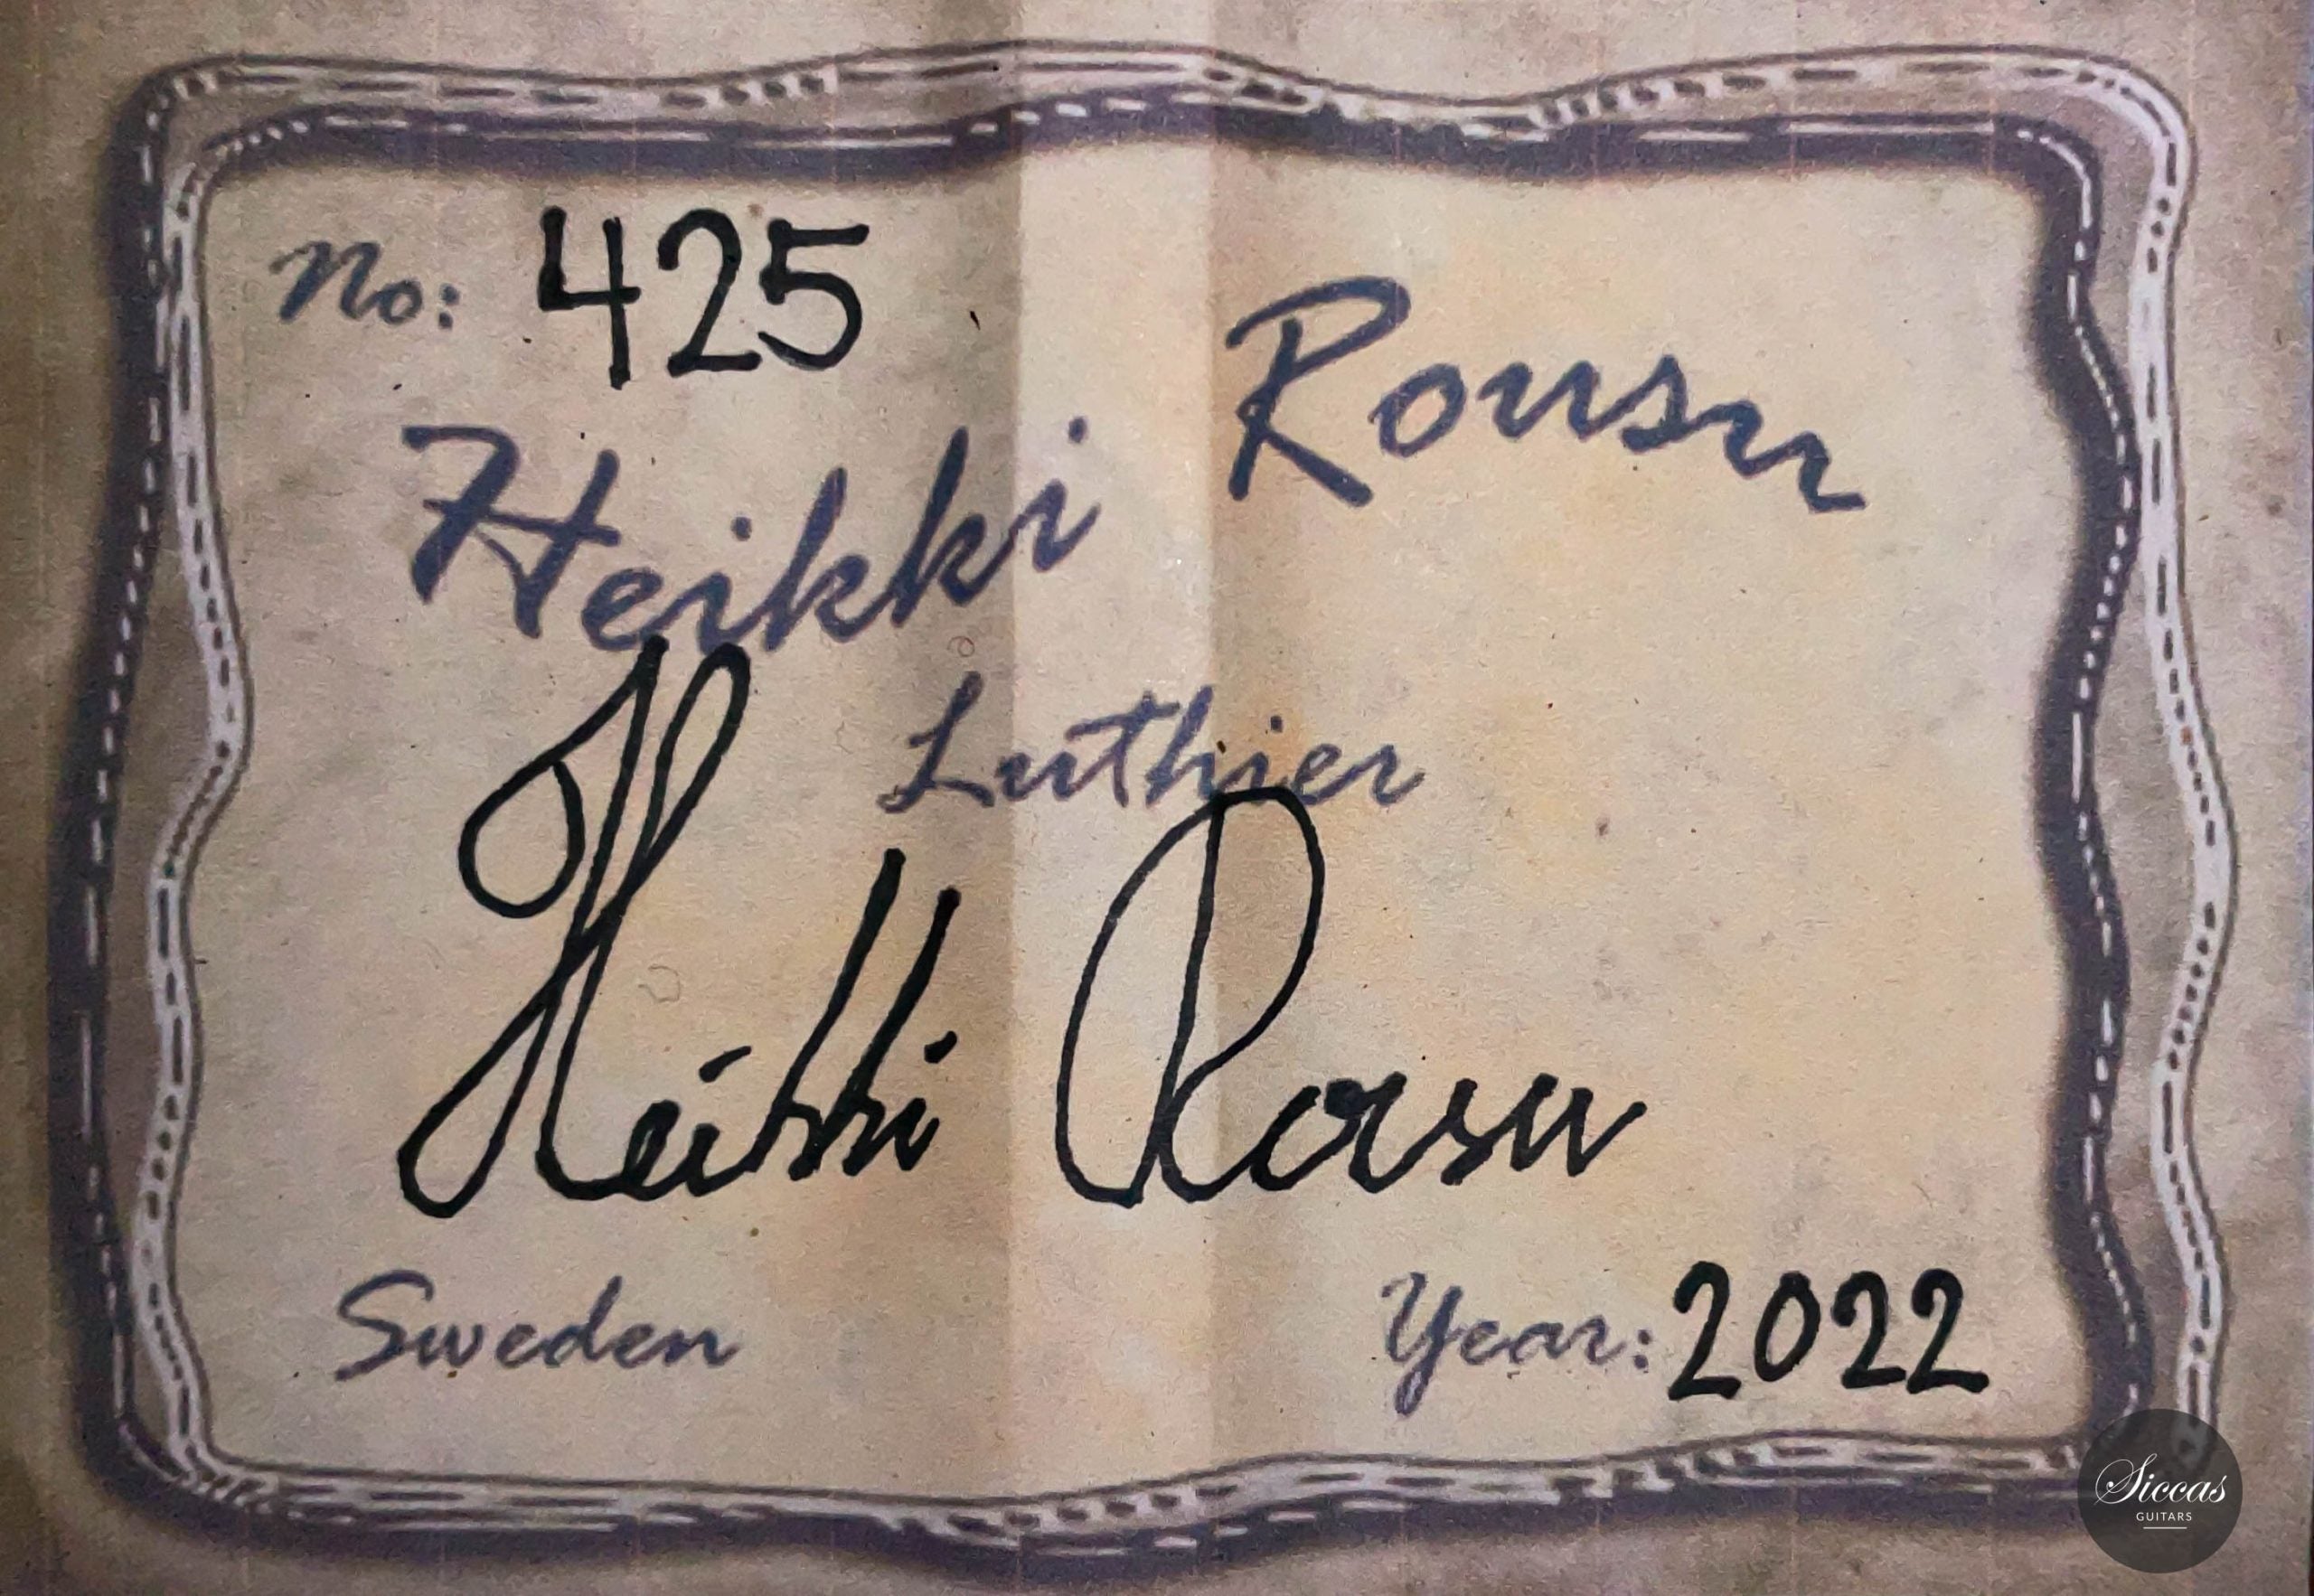 No: 425
Heikki Rousu
Luthier
Heikki Rousu
Sweden
Year: 2022
Siccas
GUITARS